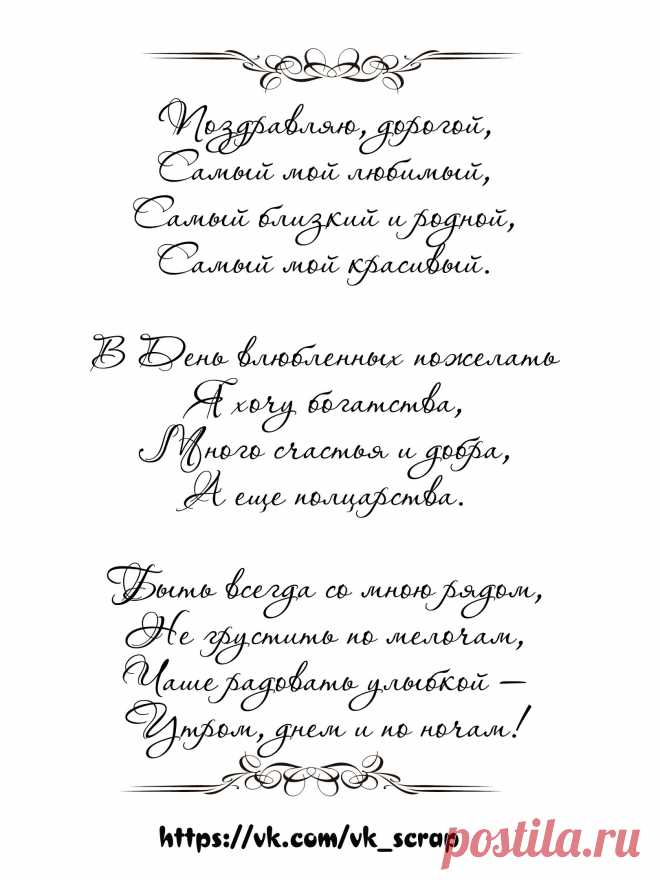 Поздравляю, дорогой,
Самый мой любимый,
Самый близкий и родной,
Самый мой красивый.
В День влюбленных пожелать
Я хочу богатства,
Много счастья и добра,
А еще полцарства.
Быть всегда со мною рядом,
Не грустить по мелочам,
Чаше радовать улыбкой —
Утром, днем и по ночам!
https://vk.com/vk_scrap
postila.ru